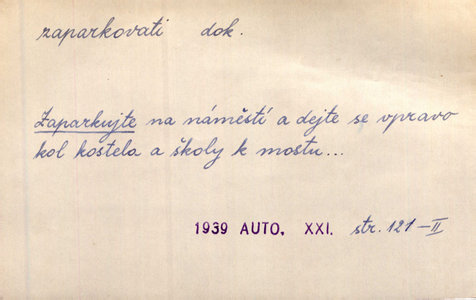 zaparkovati dok.
Zaparkujte na náměstí a dejte se vpravo
kol kostela a školy k mostu...
1939 AUTO. XXI. str. 121-II